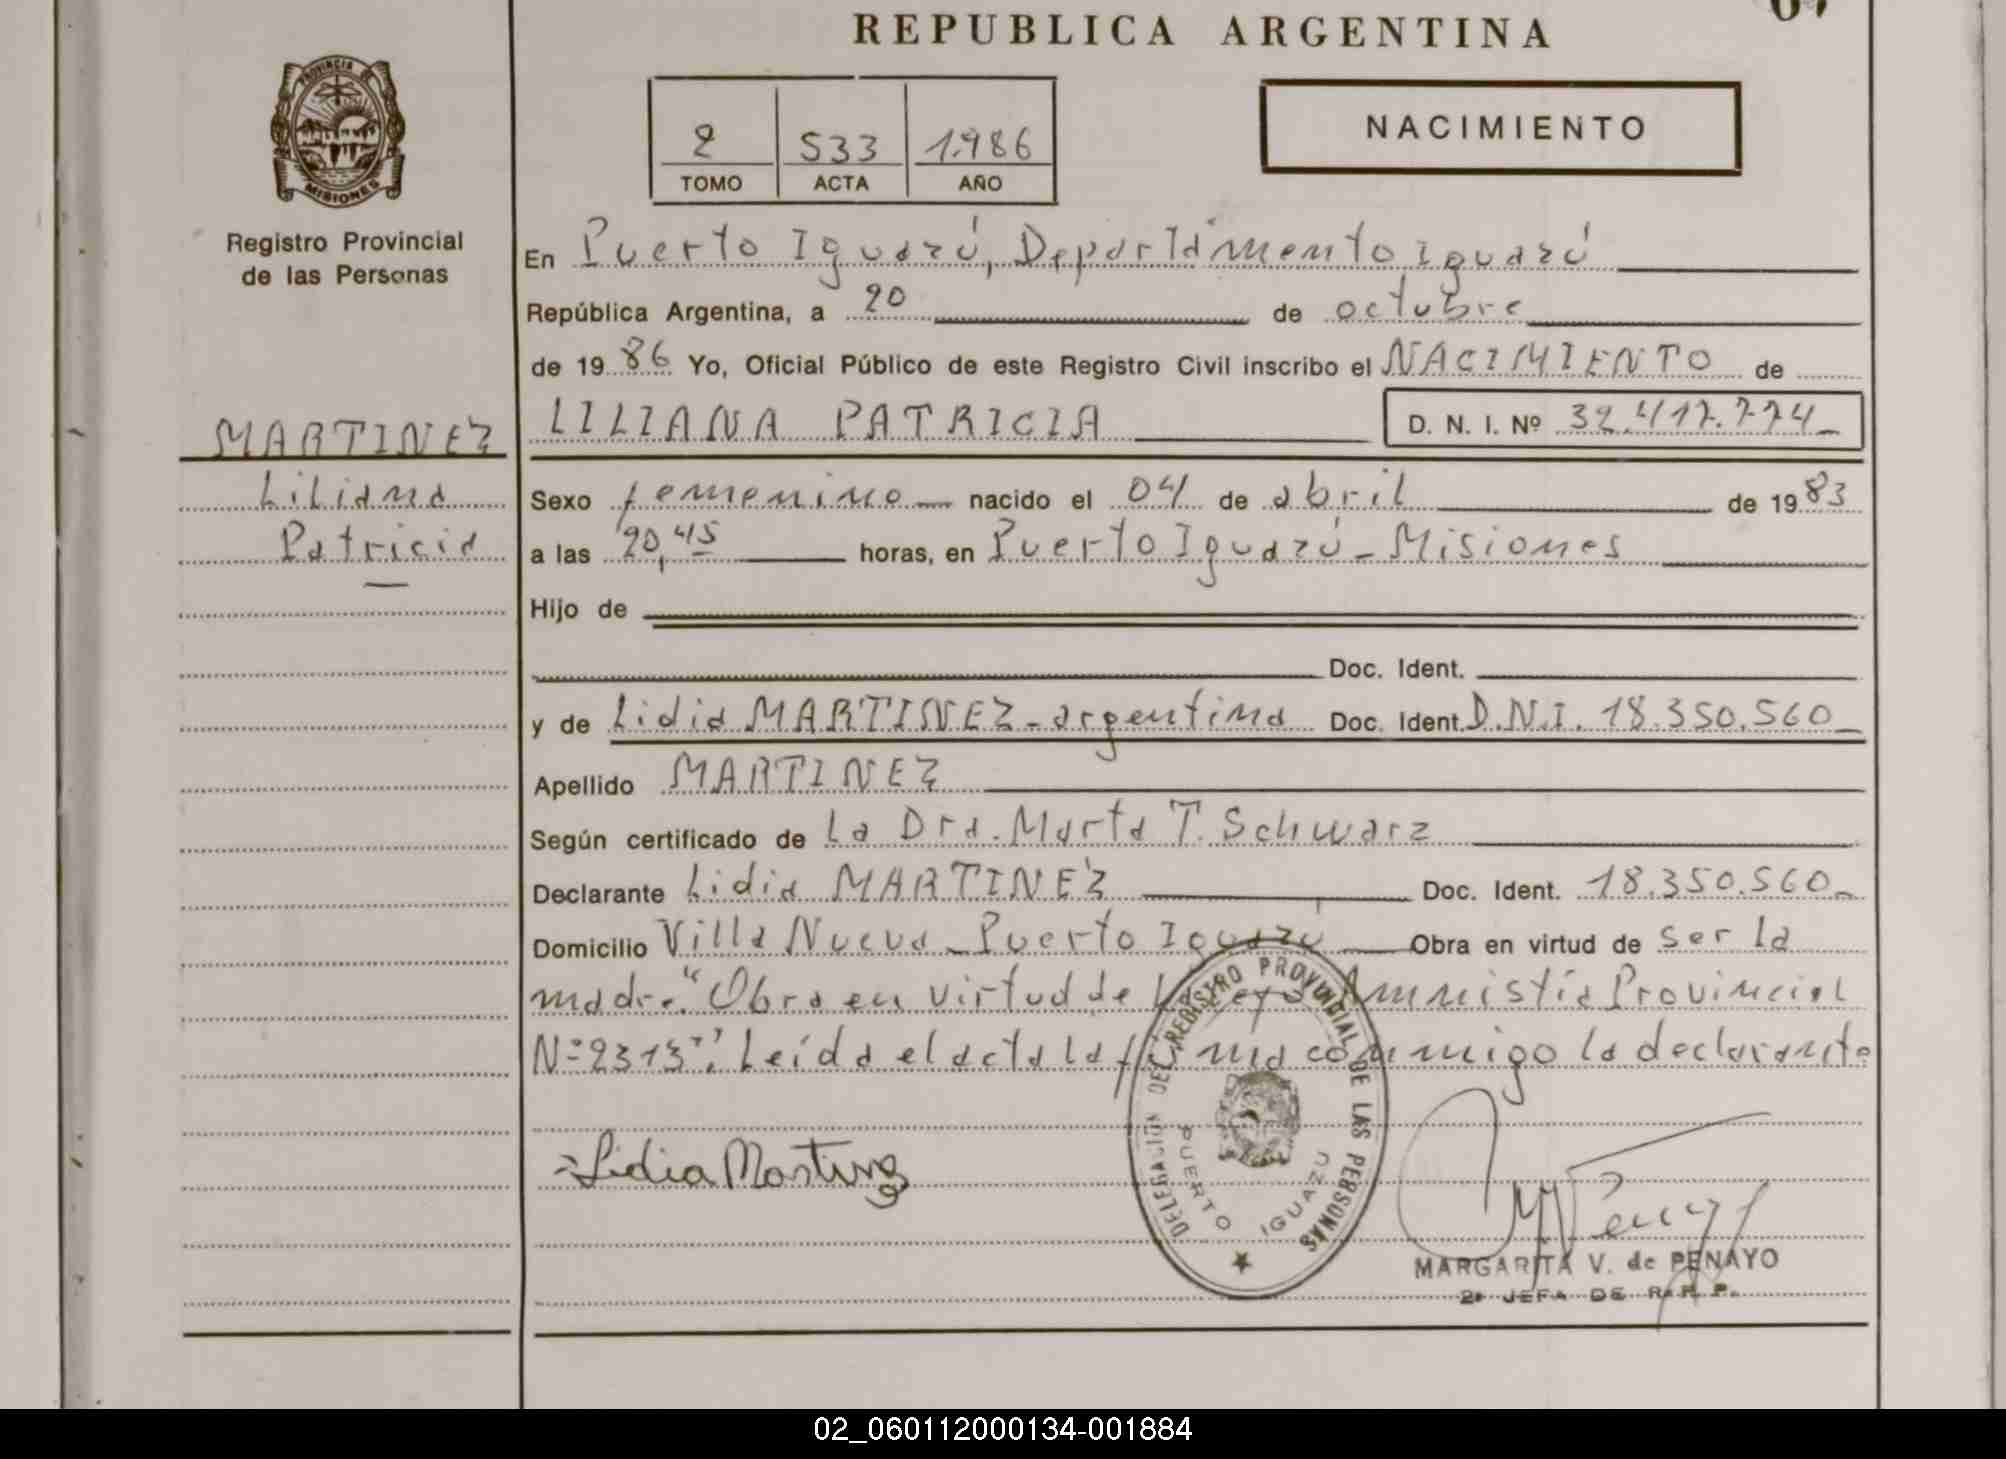 REPUBLICA ARGENTINA
PROVINCIA DE
MISIONES
Registro Provincial
de las Personas
2 533 1.986
TOMO ACTA AÑO
NACIMIENTO
En Puerto Iguazú, Departamento Iguazú
República Argentina, a 20 de octubre
de 19 86 Yo, Oficial Público de este Registro Civil inscribo el NACIMIENTO de
MARTINEZ
LILIANA PATRICIA D. N. I. Nº 32.417.774
Liliana
Sexo femenino nacido el 04 de abril de 19 83
Patricia
a las 20,45 horas, en Puerto Iguazú - Misiones
Hijo de
Doc. Ident.
y de Lidia MARTINEZ - argentina Doc. Ident. D.N.I. 18.350.560
Apellido MARTINEZ
Según certificado de La Dra. Marta T. Schwarz
Declarante Lidia MARTINEZ Doc. Ident. 18.350.560
Domicilio Villa Nueva - Puerto Iguazú Obra en virtud de ser la
madre. "Obra en virtud de Amnistía Provincial
Nº 2313". Leída el acta la firma conmigo la declarante
Lidia Martinez
DELEGACION DEL REGISTRO PROVINCIAL DE LAS PERSONAS
PUERTO IGUAZU
MARGARITA V. de PENAYO
2ª JEFA DE R. P. P.
02_060112000134-001884